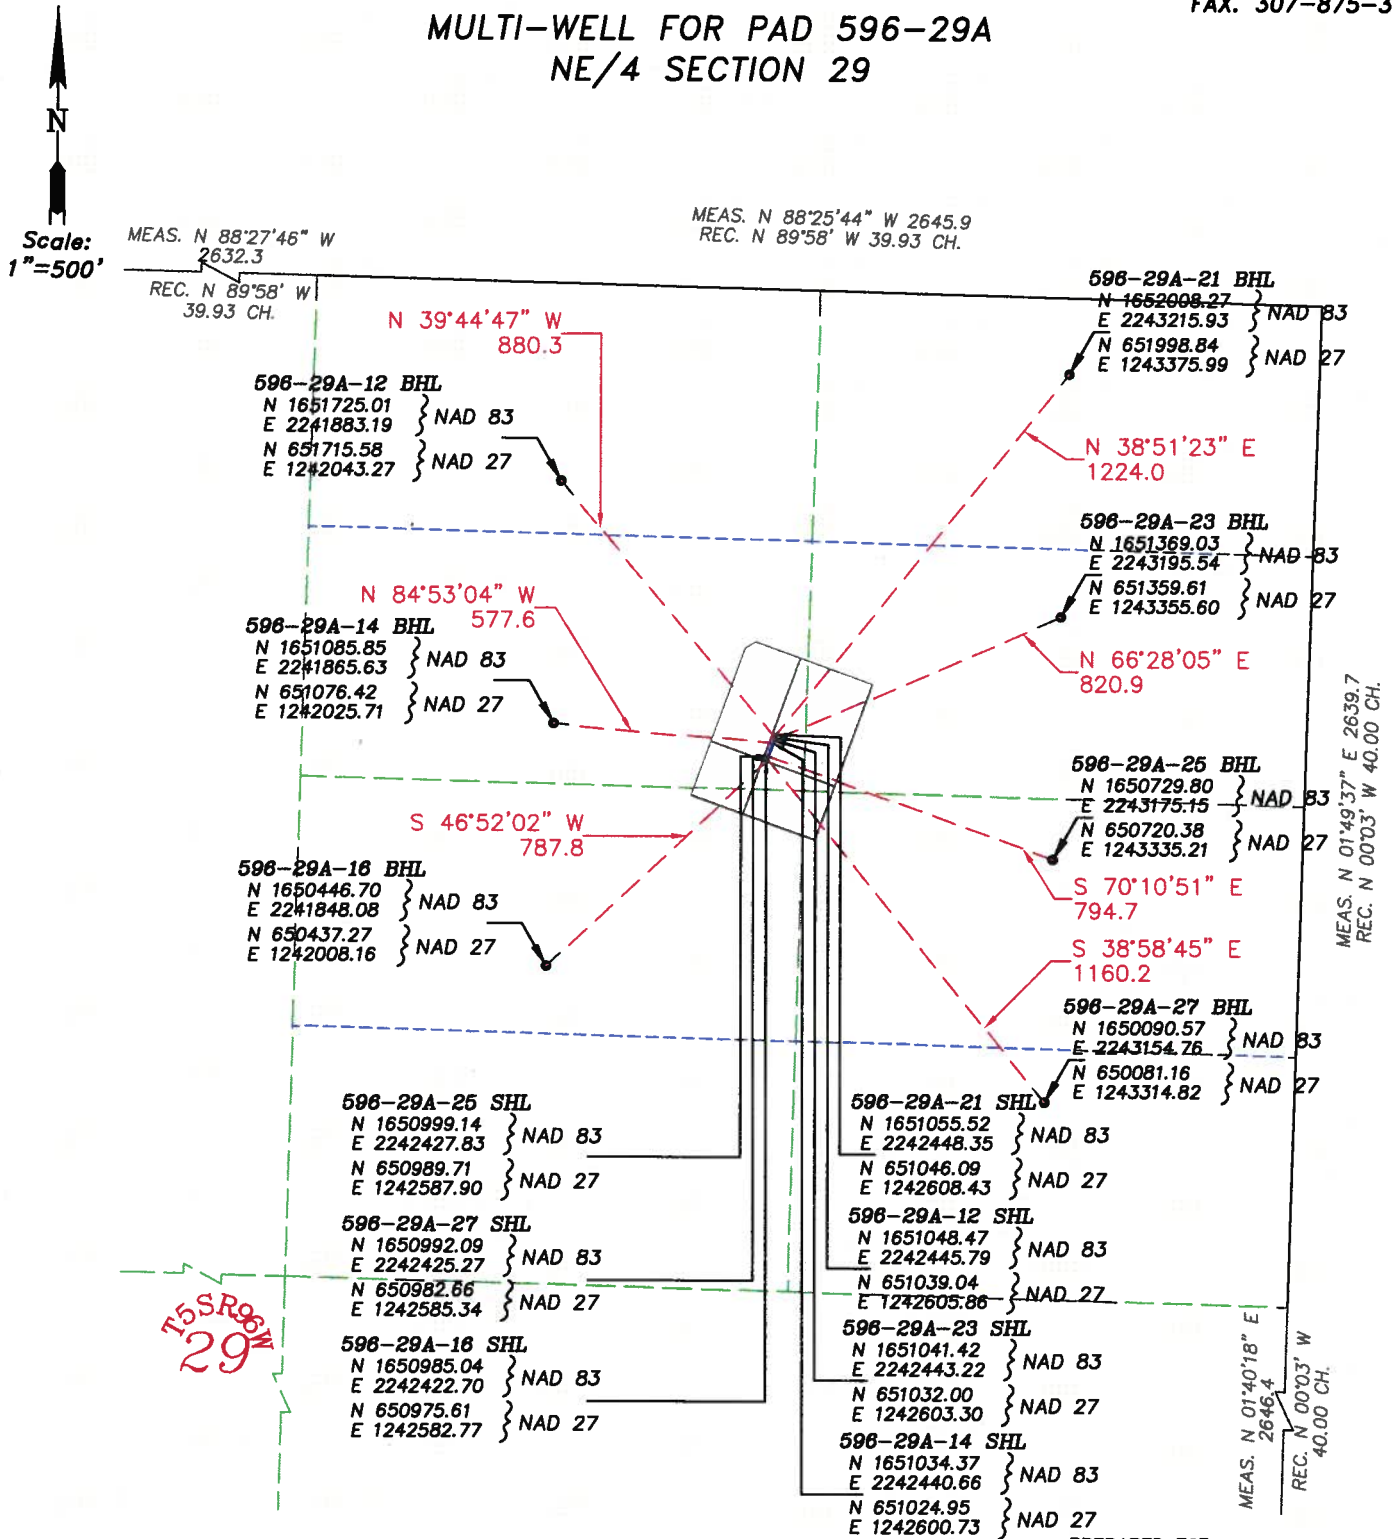 FAX. 307-875-3
MULTI-WELL FOR PAD 596-29A
NE/4 SECTION 29
N
Scale:
1"=500'
MEAS. N 88°27'46" W
2632.3
REC. N 89°58' W
39.93 CH.
MEAS. N 88°25'44" W 2645.9
REC. N 89°58' W 39.93 CH.
N 39°44'47" W
880.3
596-29A-12 BHL
N 1651725.01
E 2241883.19
NAD 83
N 651715.58
E 1242043.27
NAD 27
596-29A-21 BHL
N 1652008.27
E 2243215.93
NAD 83
N 651998.84
E 1243375.99
NAD 27
N 38°51'23" E
1224.0
596-29A-23 BHL
N 1651369.03
E 2243195.54
NAD 83
N 651359.61
E 1243355.60
NAD 27
N 84°53'04" W
577.6
596-29A-14 BHL
N 1651085.85
E 2241865.63
NAD 83
N 651076.42
E 1242025.71
NAD 27
N 66°28'05" E
820.9
MEAS. N 01°49'37" E 2639.7
REC. N 00°03' W 40.00 CH.
596-29A-25 BHL
N 1650729.80
E 2243175.15
NAD 83
N 650720.38
E 1243335.21
NAD 27
S 46°52'02" W
787.8
596-29A-16 BHL
N 1650446.70
E 2241848.08
NAD 83
N 650437.27
E 1242008.16
NAD 27
S 70°10'51" E
794.7
S 38°58'45" E
1160.2
596-29A-27 BHL
N 1650090.57
E 2243154.76
NAD 83
N 650081.16
E 1243314.82
NAD 27
596-29A-25 SHL
N 1650999.14
E 2242427.83
NAD 83
N 650989.71
E 1242587.90
NAD 27
596-29A-27 SHL
N 1650992.09
E 2242425.27
NAD 83
N 650982.66
E 1242585.34
NAD 27
596-29A-16 SHL
N 1650985.04
E 2242422.70
NAD 83
N 650975.61
E 1242582.77
NAD 27
596-29A-21 SHL
N 1651055.52
E 2242448.35
NAD 83
N 651046.09
E 1242608.43
NAD 27
596-29A-12 SHL
N 1651048.47
E 2242445.79
NAD 83
N 651039.04
E 1242605.86
NAD 27
596-29A-23 SHL
N 1651041.42
E 2242443.22
NAD 83
N 651032.00
E 1242603.30
NAD 27
596-29A-14 SHL
N 1651034.37
E 2242440.66
NAD 83
N 651024.95
E 1242600.73
NAD 27
T5SR96W
29
MEAS. N 01°40'18" E
2646.4
REC. N 00°03' W
40.00 CH.